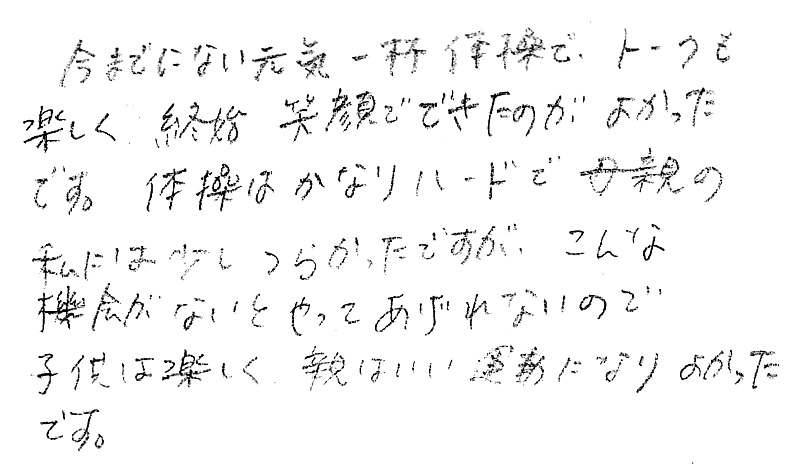 今までにない元気一杯体操で、トークも
楽しく、終始笑顔でできたのがよかった
です。体操はかなりハードで母親の
私には少しつらかったですが、こんな
機会がないとやってあげれないので
子供は楽しく、親はいい運動になりよかった
です。